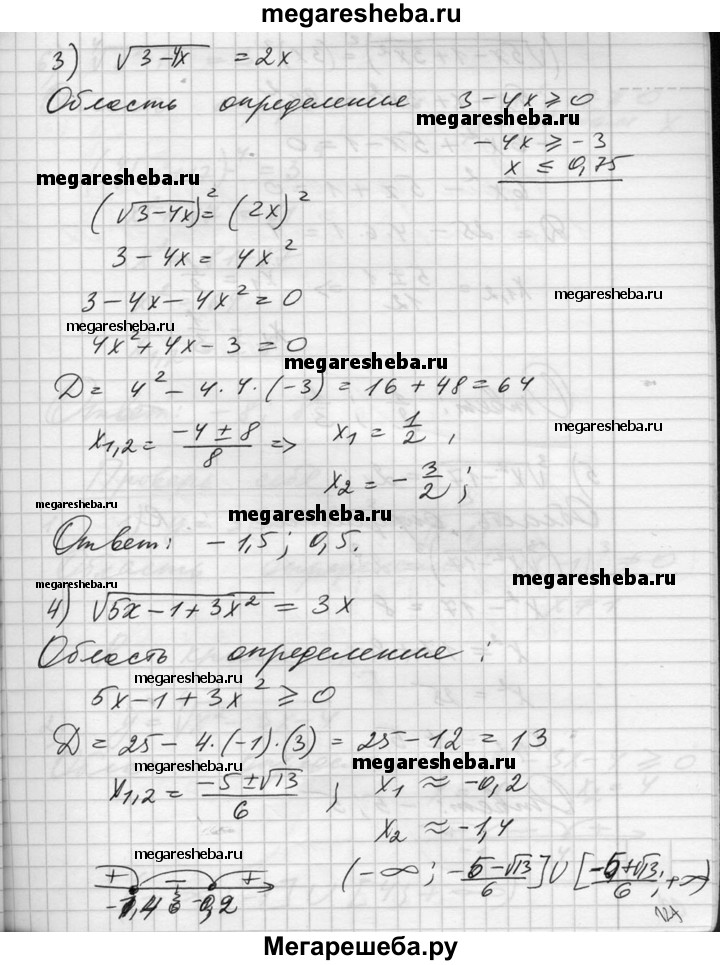 megaresheba.ru
3) √(3-4x) = 2x
Область определения 3-4x ≥ 0
megaresheba.ru
-4x ≥ -3
megaresheba.ru
x ≤ 0,75
(√(3-4x))² = (2x)²
3 - 4x = 4x²
3 - 4x - 4x² = 0
megaresheba.ru
megaresheba.ru
4x² + 4x - 3 = 0
megaresheba.ru
D = 4² - 4·4·(-3) = 16 + 48 = 64
x₁,₂ = (-4 ± 8)/8 => x₁ = 1/2 ,
megaresheba.ru
x₂ = - 3/2 ;
megaresheba.ru
megaresheba.ru
Ответ: -1,5; 0,5.
megaresheba.ru
megaresheba.ru
4) √(5x-1+3x²) = 3x
Область определения :
megaresheba.ru
5x-1+3x² ≥ 0
D = 25 - 4·(-1)·(3) = 25 - 12 = 13
megaresheba.ru
megaresheba.ru
x₁,₂ = (-5 ± √13)/6 ; x₁ ≈ -0,2
x₂ ≈ -1,4
megaresheba.ru
+ - +
(-∞; (-5-√13)/6] ∪ [(-5+√13)/6; +∞)
-1,4 -0,2
megaresheba.ru
Мегарешеба.ру